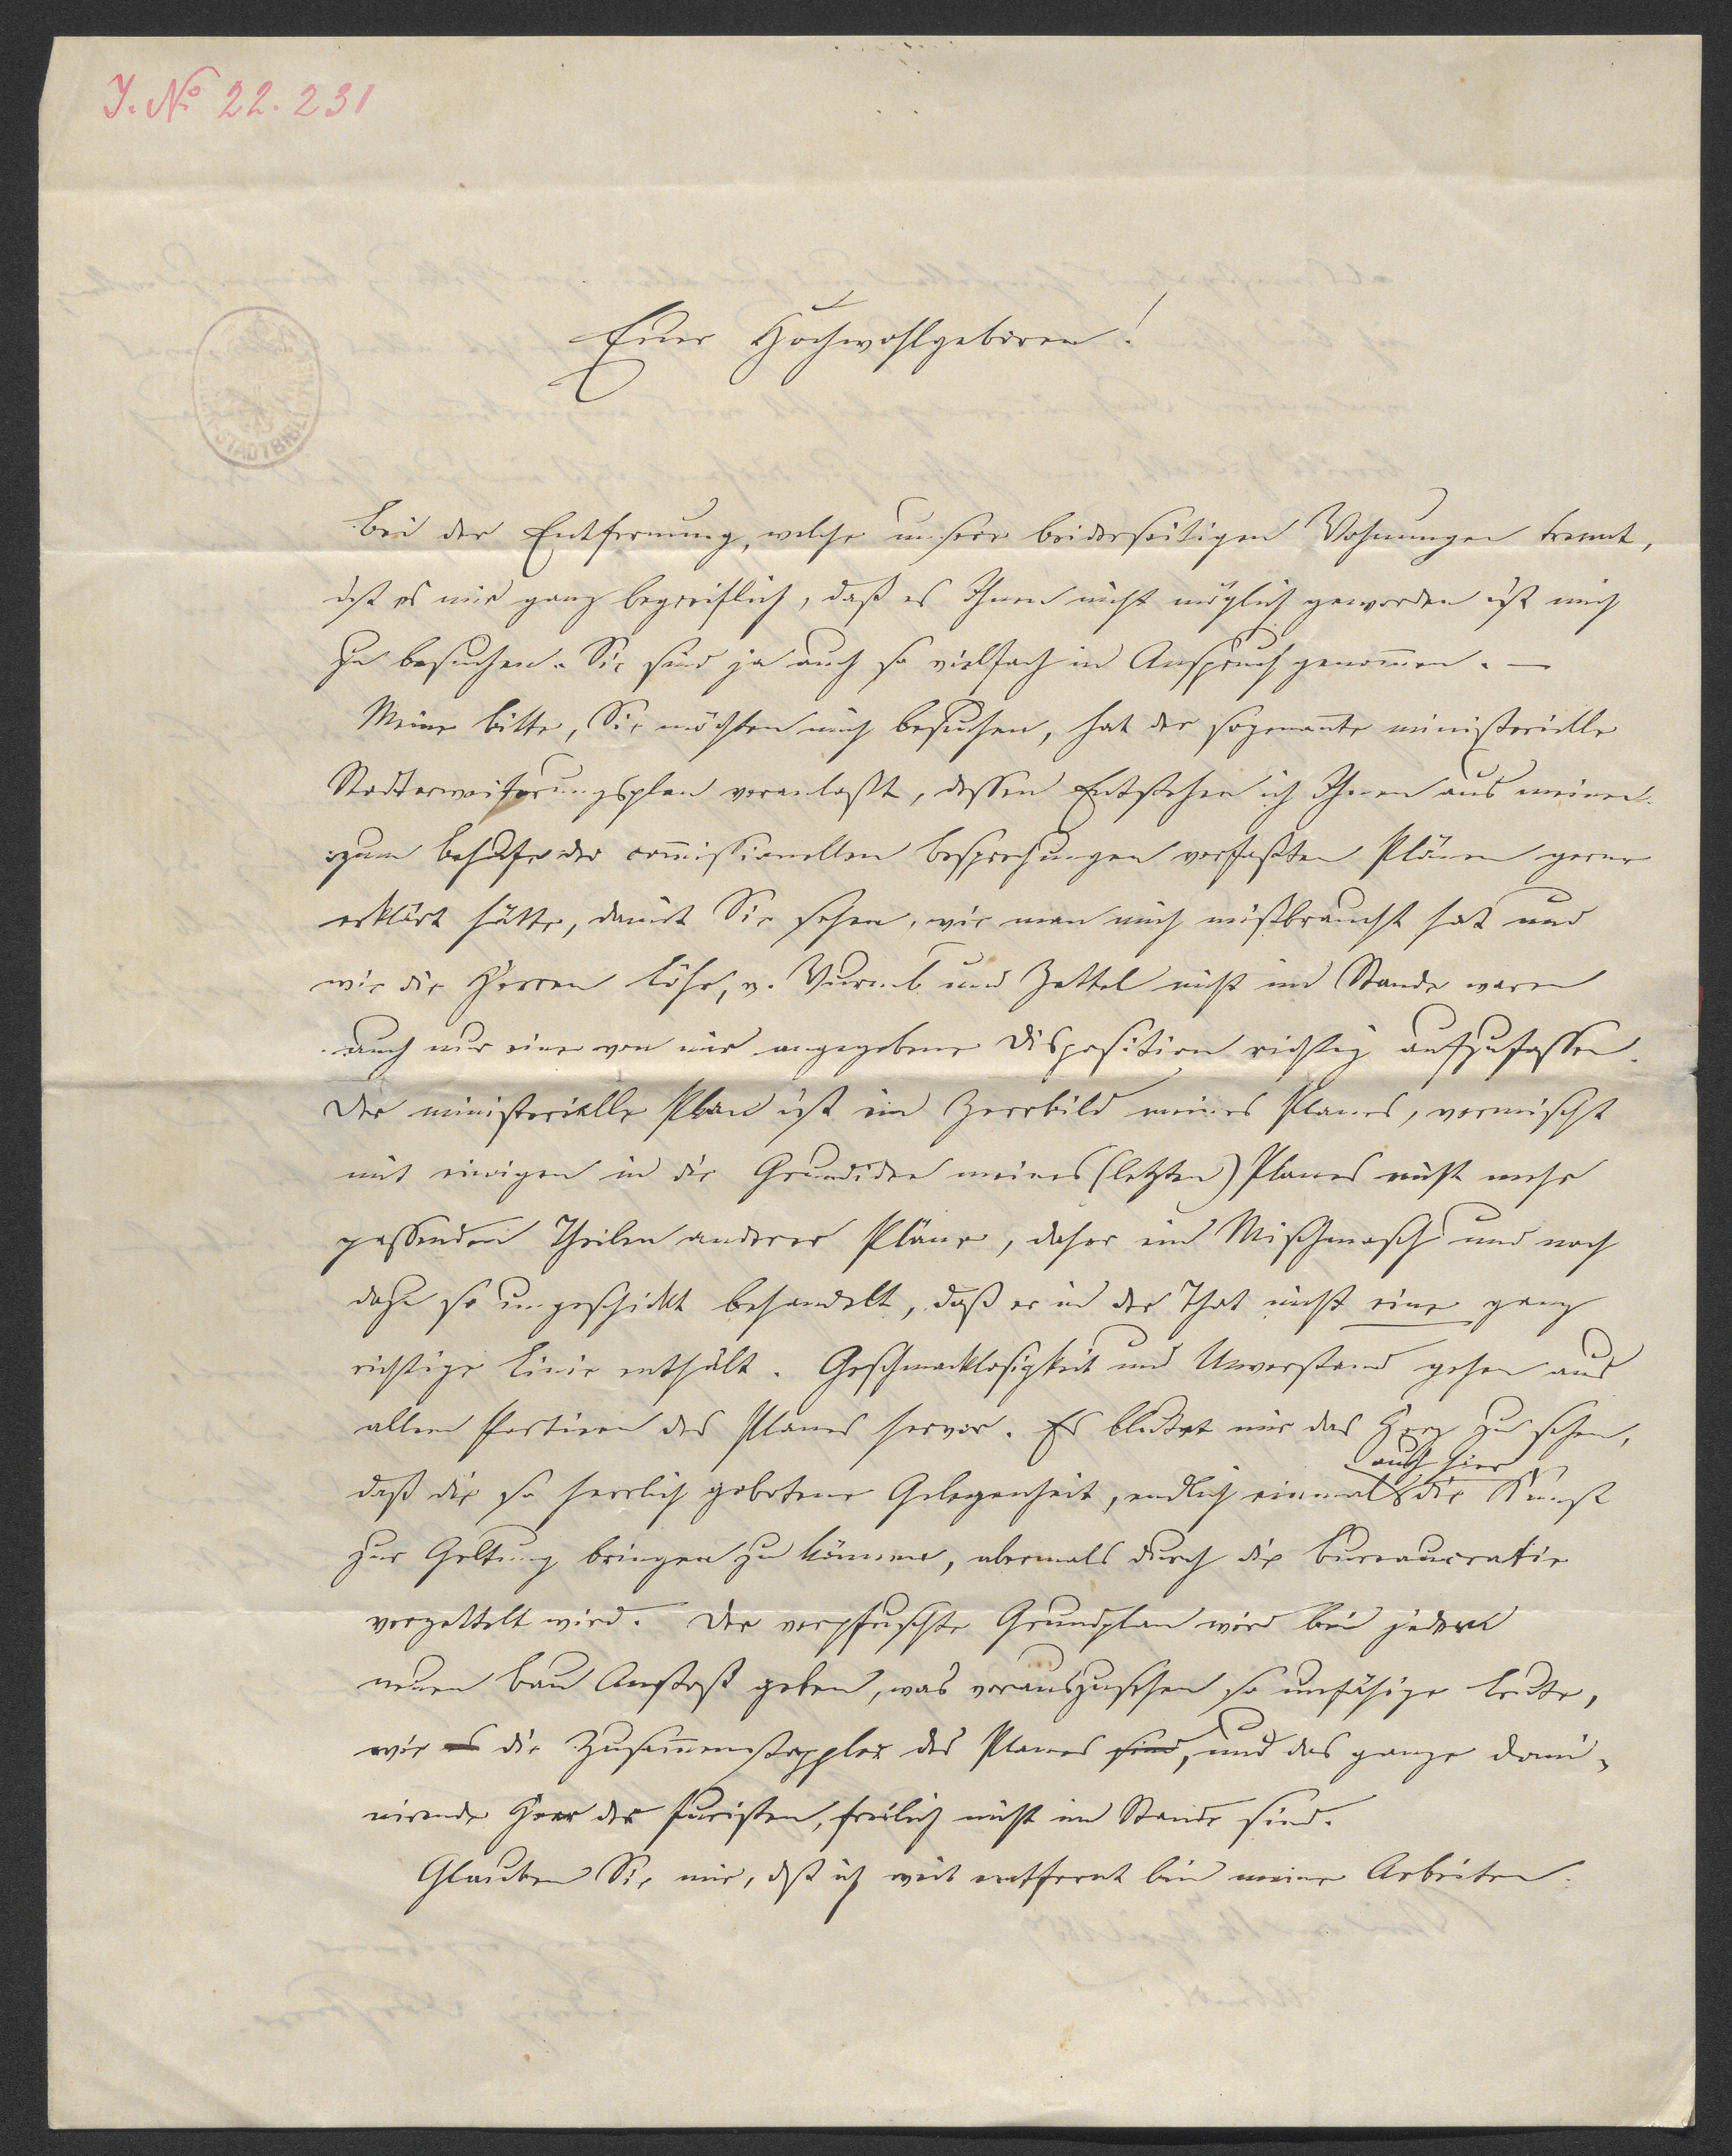 J. No 22.231
Euer Hochwohlgeboren!
STADTBIBLIOTHEK
Bei der Entfernung, welche unsere beiderseitigen Wohnungen trennt,
ist es mir ganz begreiflich, daß es Ihnen nicht möglich geworden ist mich
zu besuchen. Sie sind ja auch so vielfach in Anspruch genom̅en. —
Meine Bitte, Sie möchten mich besuchen, hat der sogenan̅te ministerielle
Stadterweiterungsplan veranlaßt, dessen Entstehen ich Ihnen aus meinen
zum Behufe der com̅issionellen Besprechungen verfaßten Plänen gerne
erklärt hätte, damit Sie sehen, wie man mich mißbraucht hat und
wie die Herren Löhr, v. Wurmb und Zettel nicht im Stande waren
auch nur eine von mir angegebene Disposition richtig aufzufassen.
Der ministerielle Plan ist ein Zerrbild meines Planes, vermischt
mit einigen in die Grundidee meines (letzten) Planes nicht mehr
passenden Theilen anderer Pläne, daher ein Mischmasch und noch
dazu so ungeschickt behandelt, daß er in der That nicht eine ganz
richtige Linie enthält. Geschmacklosigkeit und Unverstand gehen aus
allen Partieen des Planes hervor. Es blutet mir das Herz zu sehen,
auch hier
daß die so herrlich gebotene Gelegenheit, endlich einmal die Kunst
zur Geltung bringen zu können, abermals durch die Bureaucratie
verzettelt wird. Der verpfuschte Grundplan wird bei jedem
neuen Bau Anstoß geben, was vorauszusehen so unfähige Leute,
wie es die Zusam̅enstoppler des Planes sind, und das ganze domi-
nirende Heer der Juristen, freilich nicht im Stande sind.
Glauben Sie mir, daß ich weit entfernt bin meine Arbeiten